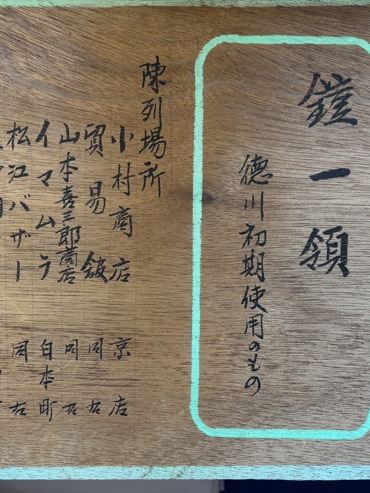 鎧一領
徳川初期使用のもの
陳列場所
小村商店 京店
貿易館 同右
山本喜三郎商店 同右
イマムラ 白本町
松江バザー 同右